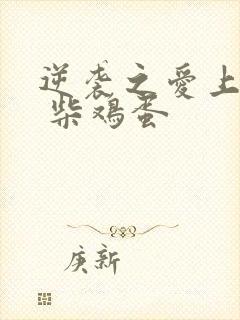 逆袭之爱上
柴鸡蛋
庚新